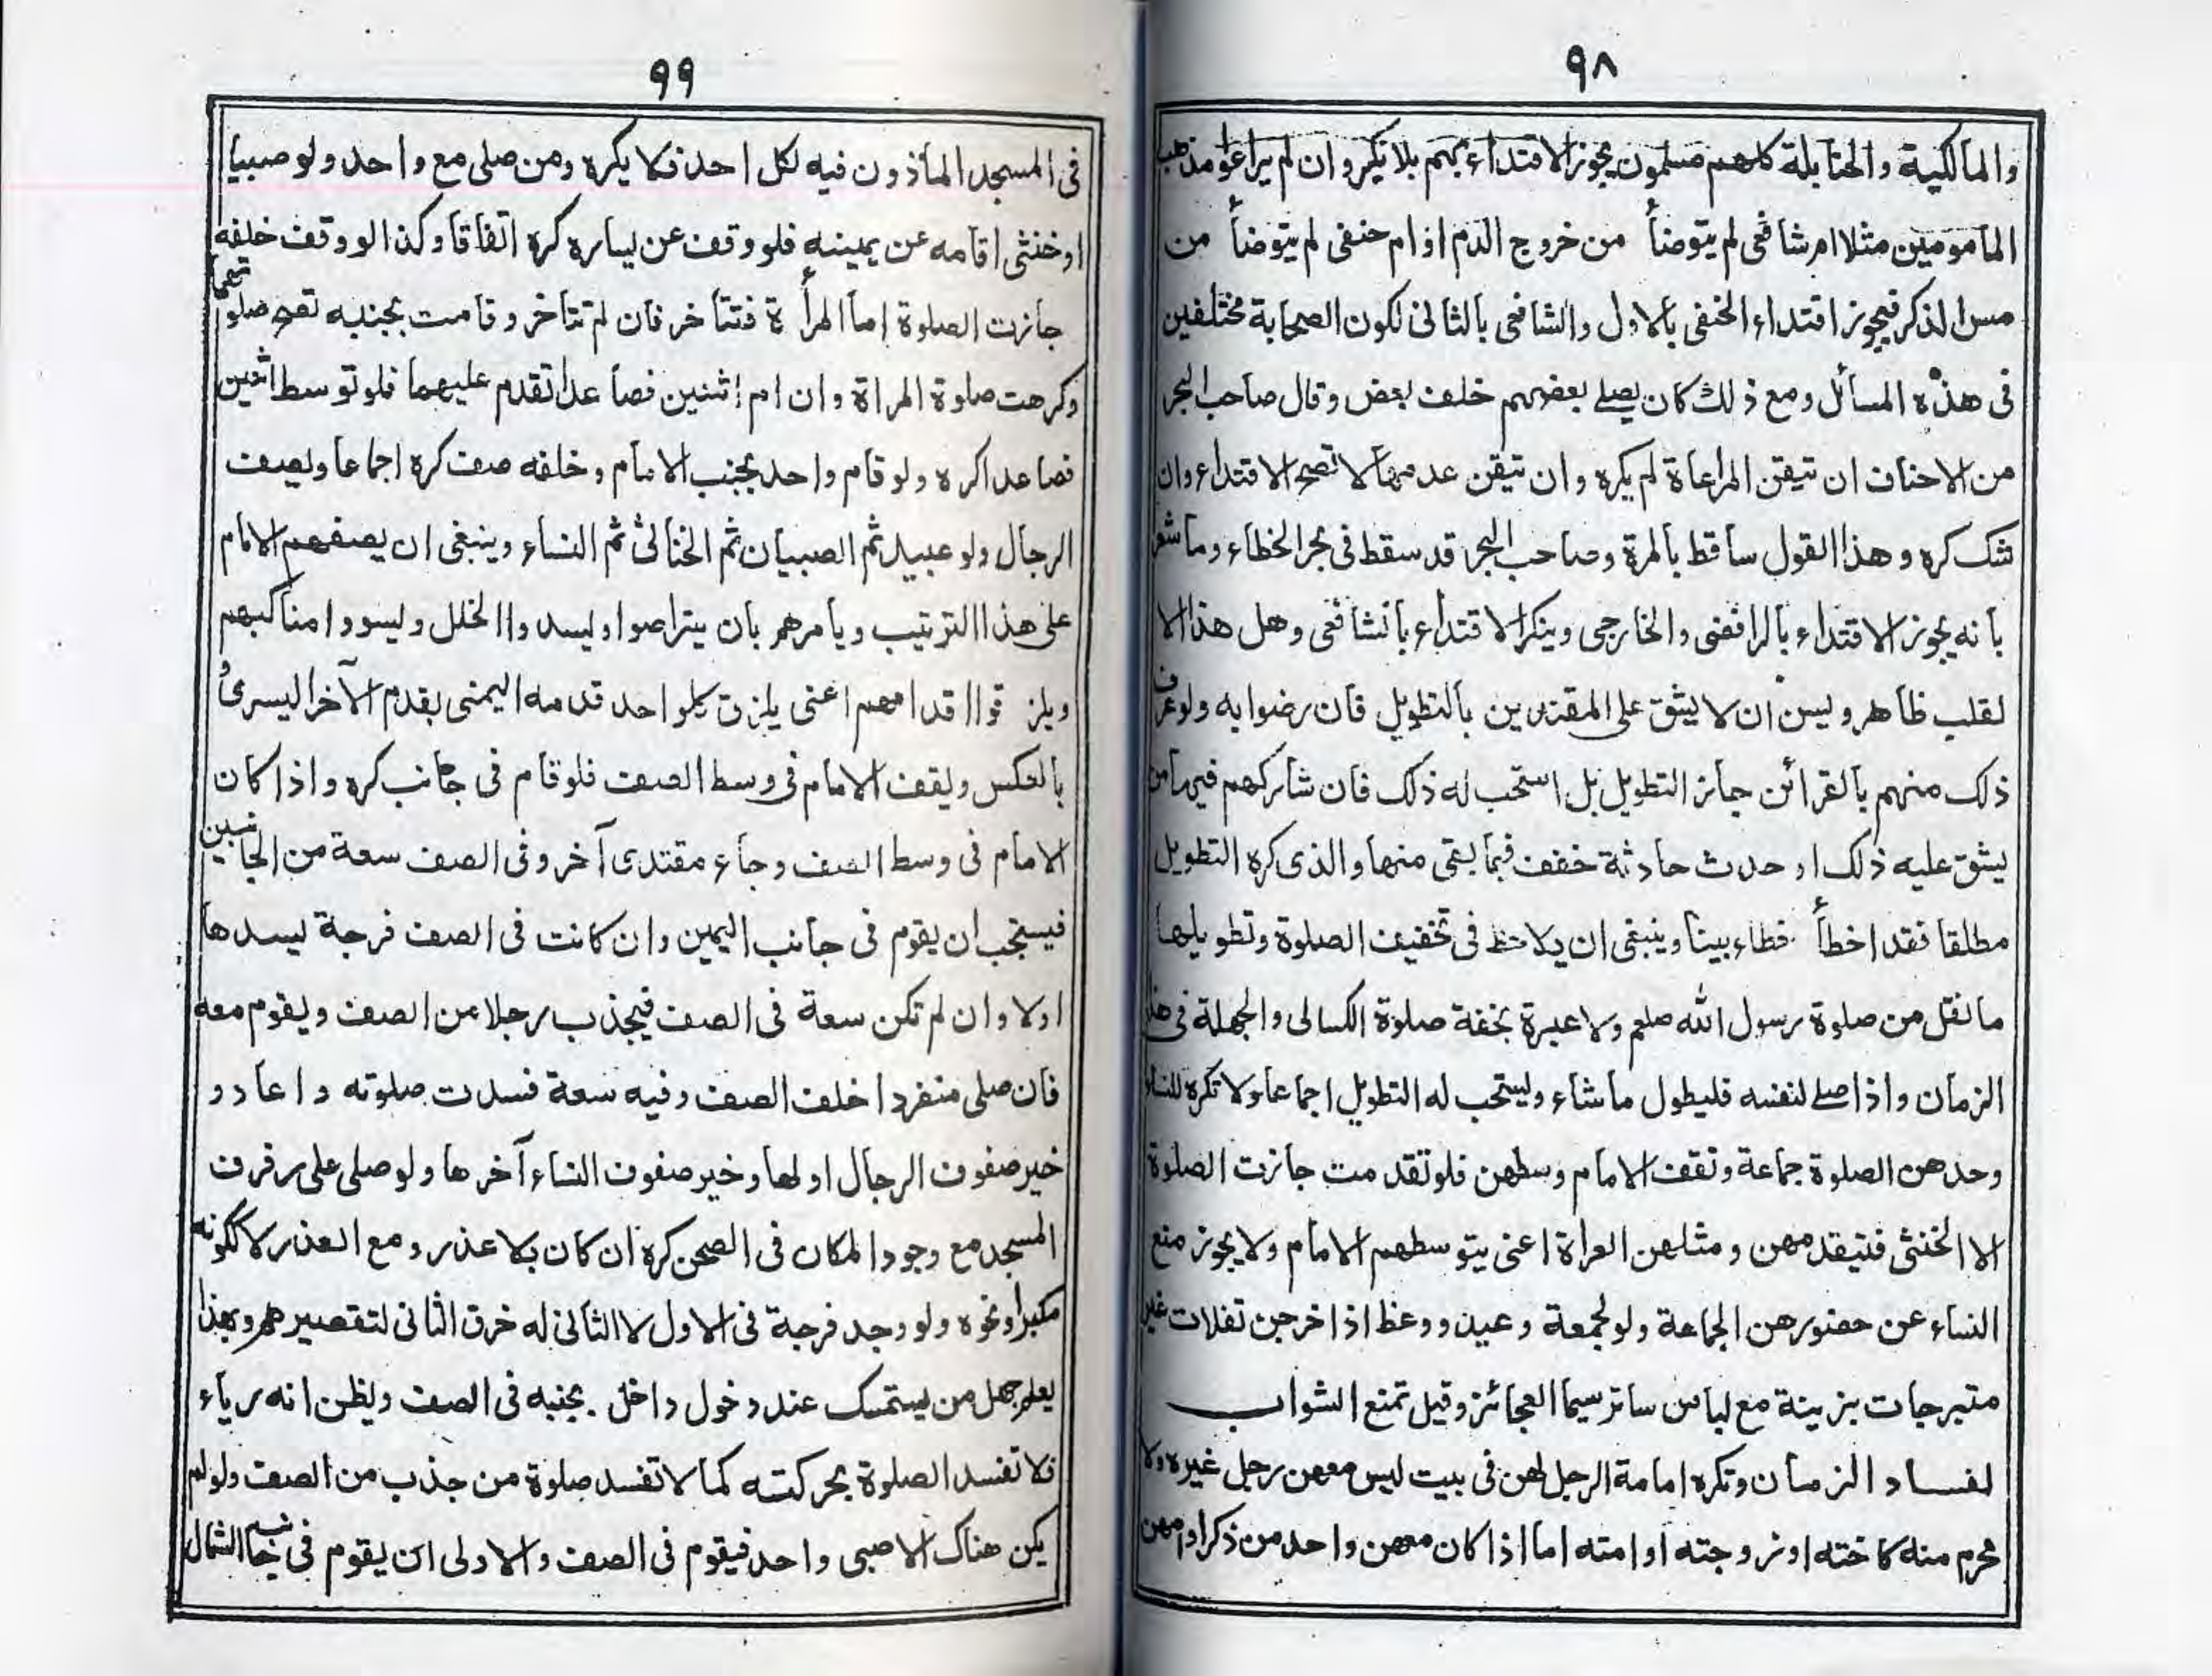 ٩٨
والمالكية والحنابلة كلهم مسلمون يجوز الاقتداء بهم بلا نكير وان لم يراعوا مذهب
المأمومين مثلا ام شافعى لم يتوضأ من خروج الدم او ام حنفى لم يتوضأ من
مس الذكر فيجوز اقتداء الحنفى بالاول والشافعى بالثانى لكون الصحابة مختلفين
فى هذه المسائل ومع ذلك كان يصلے بعضهم خلف بعض وقال صاحب البحر
من الاحناف ان تيقن المراعاة لم يكره وان تيقن عدمها لا تصح الاقتداء وان
شك كره وهذا القول ساقط بالمرة وصاحب البحر قد سقط فى بحر الخطاء وما شعر
بانه يجوز الاقتداء بالرافضى والخارجى وينكر الاقتداء بالشافعى وهل هذا الا
لقلب ظاهر وليس ان لا يشق على المقتدين بالتطويل فان رضوا به ولو عرف
ذلك منهم بالقرائن جاز التطويل بل استحب له ذلك فان شاركهم فيها من
يشق عليه ذلك او حدث حادثة خفف فيما بقى منها والذى كره التطويل
مطلقا فقد اخطأ خطاء بينا وينبغى ان يلاحظ فى تخفيف الصلوة وتطويلها
ما نقل من صلوة رسول الله صلعم ولا عبرة بخفة صلوة الكسالى والجهلة فى هذا
الزمان واذا صلے لنفسه فليطول ما شاء ويستحب له التطويل اجماعا ولا تكره للنساء
وحدهن الصلوة جماعة وتقف الامام وسطهن فلو تقدمت جازت الصلوة
الا الخنثى فتيقدمهن ومثلهن العراة اعنى يتوسطهم الامام ولا يجوز منع
النساء عن حضورهن الجماعة ولو لجمعة وعيد ووعظ اذا خرجن تفلات غير
متبرجات بزينة مع لباس ساتر سيما العجائز وقيل تمنع الشواب
لفساد الزمان وتكره امامة الرجل لهن فى بيت ليس معهن رجل غيره ولا
محرم منه كاخته او زوجته او امته اما اذا كان معهن واحد من ذكر او امهن
٩٩
فى المسجد المأذون فيه لكل احد فلا يكره ومن صلى مع واحد ولو صبيا
او خنثى اقامه عن يمينه فلو وقف عن يساره كره اتفاقا وكذا لو وقف خلفه
جازت الصلوة اما المرأة فتتأخر فان لم تتأخر وقامت بجنبه تصح صلوتهما
وكرهت صلوة المراة وان ام اثنين فصاعدا تقدم عليهما فلو توسط اثنين
فصاعدا كره ولو قام واحد بجنب الامام وخلفه صف كره اجماعا ويصف
الرجال ولو عبيدا ثم الصبيان ثم الخناثى ثم النساء وينبغى ان يصفهم الامام
على هذا الترتيب ويأمرهم بان يتراصوا ويسدوا الخلل ويسووا مناكبهم
ويلزقوا اقدامهم اعنى يلزق كلواحد قدمه اليمنى بقدم الآخر اليسرى
بالعكس ويقف الامام فى وسط الصف فلو قام فى جانب كره واذا كان
الامام فى وسط الصف وجاء مقتدى آخر وفى الصف سعة من الجانبين
فيستحب ان يقوم فى جانب اليمين وان كانت فى الصف فرجة يسدها
اولا وان لم تكن سعة فى الصف فيجذب رجلا من الصف ويقوم معه
فان صلى منفردا خلف الصف وفيه سعة فسدت صلوته واعاد و
خير صفوف الرجال اولها وخير صفوف النساء آخرها ولو صلى على رفرف
المسجد مع وجود المكان فى الصحن كره ان كان بلا عذر ومع العذر لا ككونه
مكبرا ونحوه ولو وجد فرجة فى الاول لا الثانى له خرق الثانى لتقصيرهم وبهذا
يعلم جهل من يستمسك عند دخول داخل بجنبه فى الصف ويظن انه رياء
فلا تفسد الصلوة بحركته كما لا تفسد صلوة من جذب من الصف ولو لم
يكن هناك الا صبى واحد فيقوم فى الصف والاولى ان يقوم فى جانب الشمال